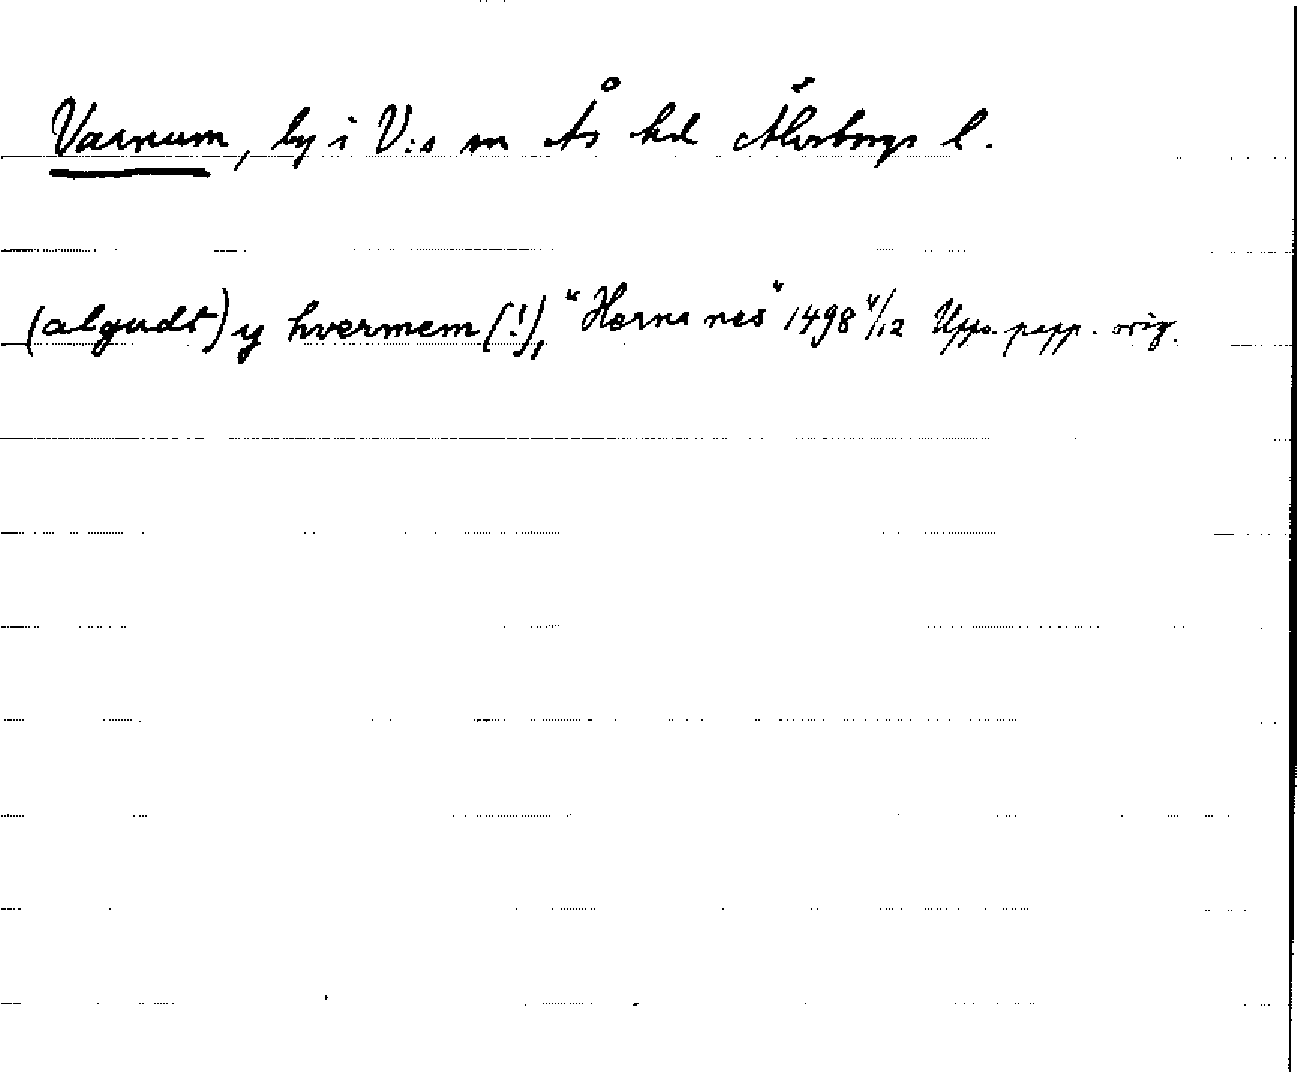 Varnum, by i V:s sn Ås hd Älvsborgs l.
(algudt) y hvermem (!), "Hærna næs" 1498 4/12 Upps. papp. orig.